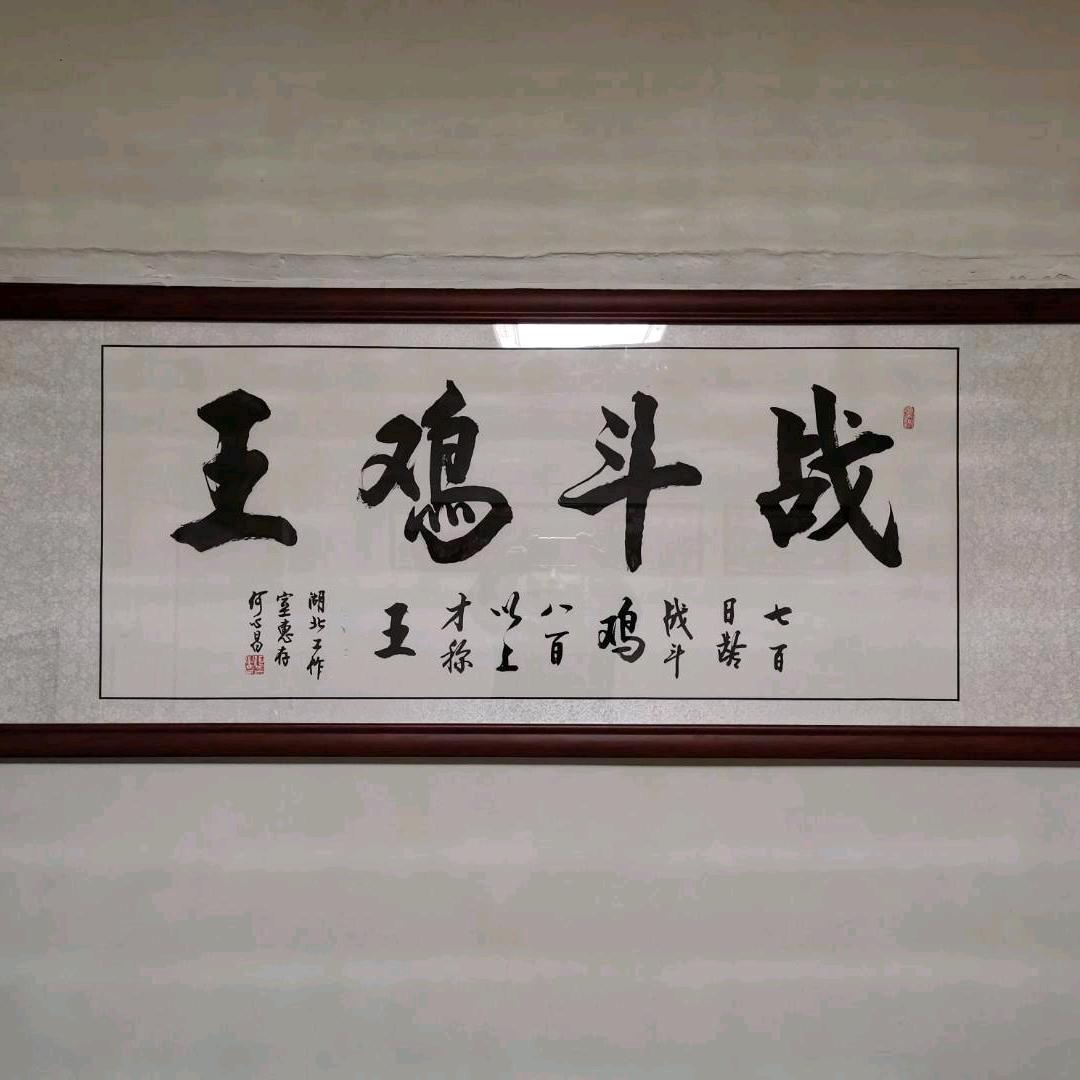 战斗鸡王
七百
日龄
战斗
鸡
八百
以上
才称
王
湖北工作
室惠存
何心易